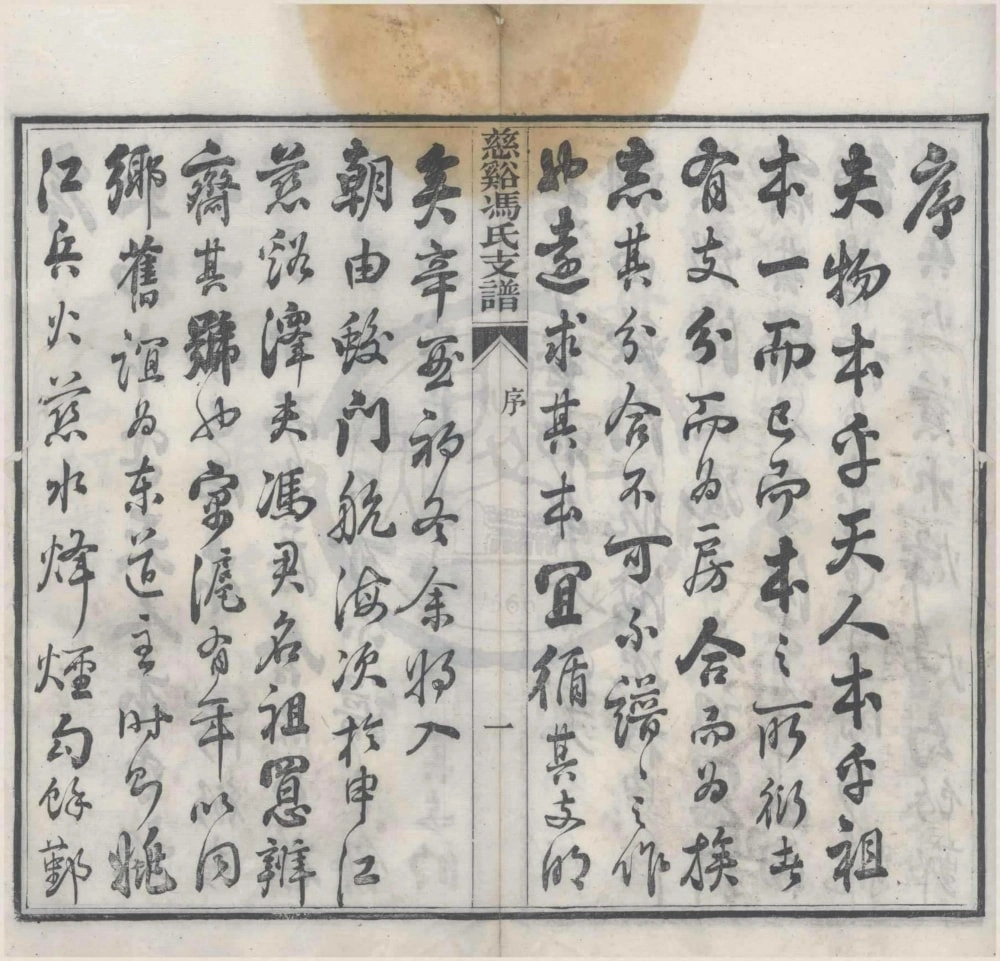 序
夫物本乎天人本乎祖
本一而已而本之所衍者
有支分而為房合而為族
其分合不可不譜譜之作
也遠求其本宜循其支明
慈谿馮氏支譜
序
一
矣辛亥初冬余將入
朝由蛟門航海次於申江
慈谿澤夫馮君名祖憲辨
齋其號也寓滬有年以同
鄉舊誼為東道主時則姚
江兵火慈水烽煙勾餘鄞